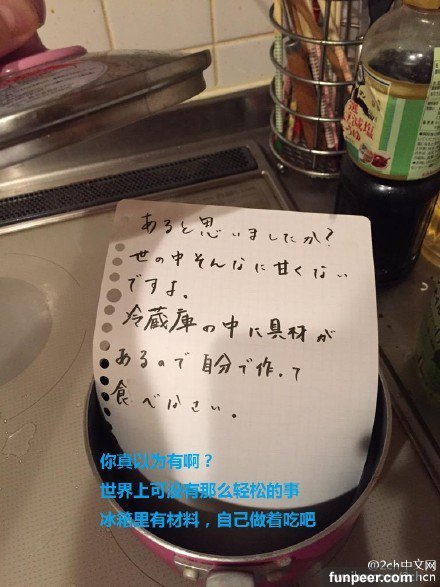 あると思いましたか?
世の中そんなに甘くない
ですよ。
冷蔵庫の中に具材が
あるので自分で作って
食べなさい。
你真以为有啊？
世界上可没有那么轻松的事
冰箱里有材料，自己做着吃吧
@2ch中文网
funpeer.com